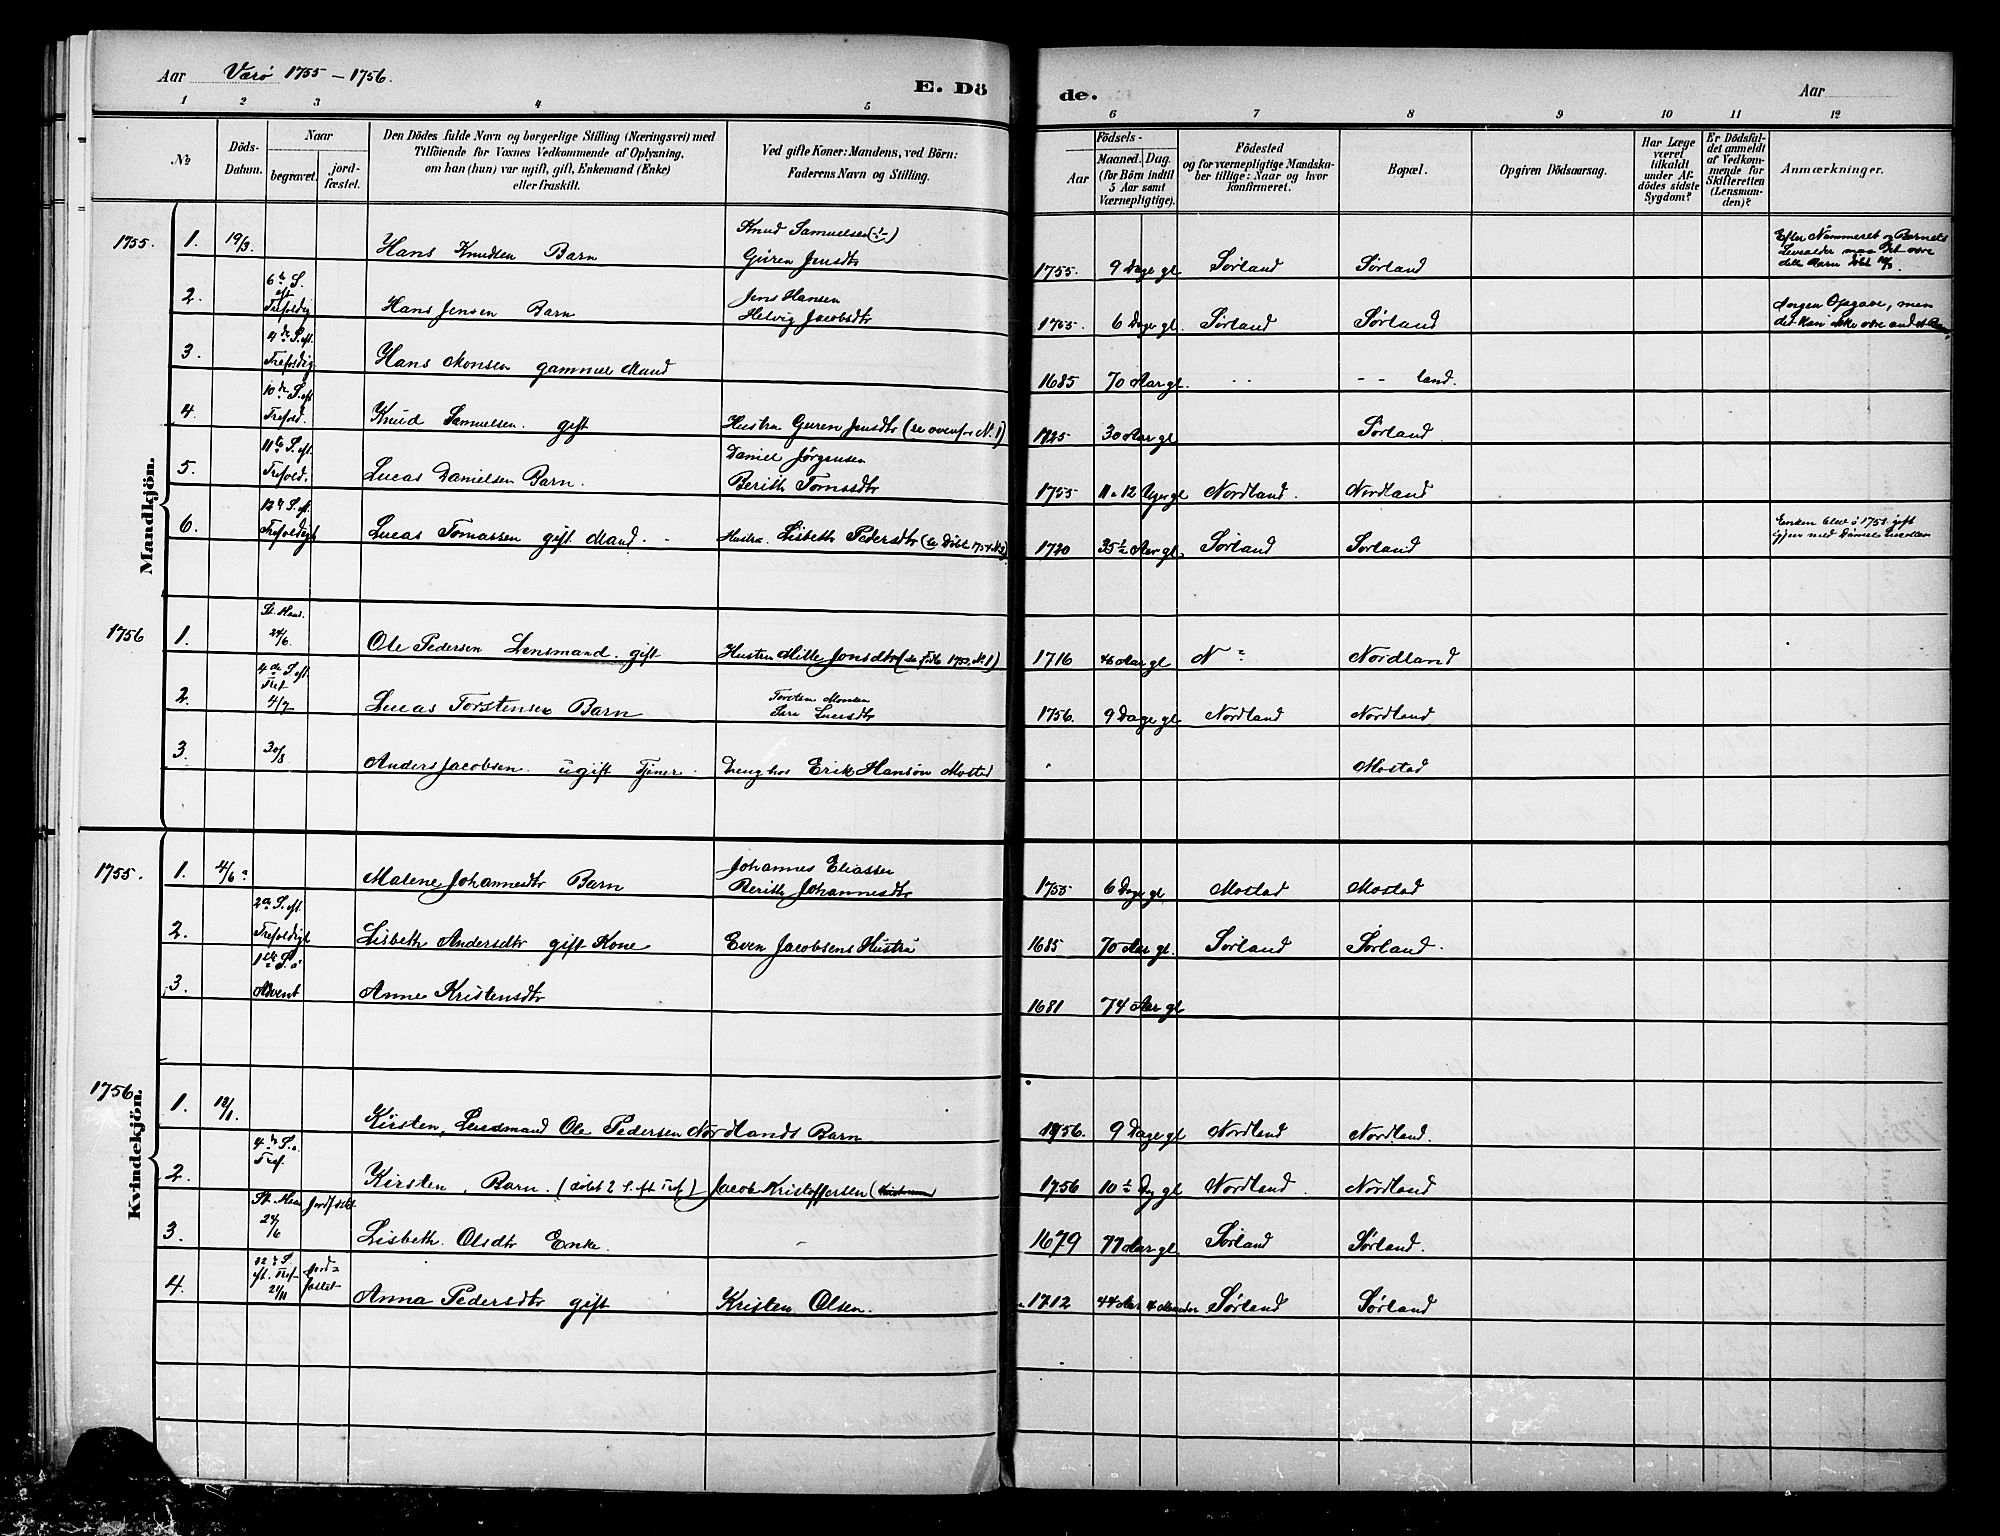 Aar Værø 1755 – 1756.
E. Dö
de.
Aar
1 2 3 4 5 6 7 8 9 10 11 12
№
Döds-
Datum.
Naar
begravet.
jord-
fæstet.
Den Dödes fulde Navn og borgerlige Stilling (Næringsvei) med
Tilföiende for Voxnes Vedkommende af Oplysning,
om han (hun) var ugift, gift, Enkemand (Enke)
eller fraskilt.
Ved gifte Koner: Mandens, ved Börn:
Faderens Navn og Stilling.
Födsels-
Aar
Maaned. Dag.
(for Börn indtil
5 Aar samt
Værnepligtige).
Födested
og for værnepligtige Mandska-
ber tillige: Naar og hvor
konfirmeret.
Bopæl.
Opgiven Dödsaarsag.
Har Læge
været
tilkaldt
under Af-
dödes sidste
Sygdom?
Er Dödsfal-
det anmeldt
af Vedkom-
mende for
Skifteretten
(Lensman-
den)?
Anmærkninger.
Mandkjön.
1755. 1. 19/3. Hans Knudsen Barn
Knud Samuelsen
Guren Jensdtr
1755. 9 Dage gl Sørland Sørland
Efter Nummeret og Barnets
Levealder maa Det være
dette Barn
2. 6te S. eft Trefoldig Hans Jensen Barn
Jens Hansen
Helvig Jacobsdtr
1755. 6 Dage gl. Sørland Sørland
Ingen Opgave, men
det kan ikke være andet
3. 4de S. eft. Trefoldig Hans Monsen gammel Mand
1685 70 Aar gl. - - - - land.
4. 10de S. eft Trefold. Knud Samuelsen gift Hustru Guren Jensdtr (se ovenfor N. 1)
1725 30 Aar gl Sørland.
5. 11te S. eft. Trefold. Lucas Danielsen Barn.
Daniel Jørgensen
Berith Tomasdtr
1755 11 a 12 Uger gl Nordland. Nordland
6. 12te S. eft. Trefoldigh Lucas Tomassen gift Mand. Hustru Lisbeth Pedersdtr
1720 35½ Aar gl. Sørland Sørland
Enken blev i 175 gift
igjen med Daniel
1756 1. St. Hans. 24/6. Ole Pedersen Lensmand. gift Hustru Mille Jonsdtr
1716 Aar gl N Nordland
2. 4de S. eft. Tref 4/7 Lucas Torstensen Barn
Torsten Monsen
1756. 9 Dage gl Nordland Nordland
3. 30/8 Anders Jacobsen. ugift Tjener. Dreng hos Erik Hanson Mostad
Mostad
Kvindekjön.
1755. 1. Malene Johannesdtr Barn
Johannes Eliassen
Berith Johannesdtr
1755 6 Dage gl Mostad Mostad
2. 2den S. eft. Trefoldigh Lisbeth Andersdtr gift Kone Even Jacobsens Hustru
1685 70 Aar gl. Sørland Sørland.
3. 1ste S. i Advent Anne Kristensdtr
1681 74 Aar gl
1756. 1. 12/1. Kirsten, Lensmand Ole Pedersen Nordlands Barn
1756. 9 Dage gl Nordland Nordland.
2. 4de S. e. Tref. Kirsten, Barn. (døbt 2 S. eft Tref.) Jacob Kristoffersen
1756 10½ Dg gl Nordland. Nordland
3. St. Hans 24/6 Jordfæstet Lisbeth Olsdtr Enke. -
1679 77 Aar gl. Sørland Sørland.
4. 22de S. eft. Tref- 21/11 jord=fæstet Anna Pedersdtr gift Kristen Olsen.
1712 44 Aar 4 Maaneder Sørland Sørland